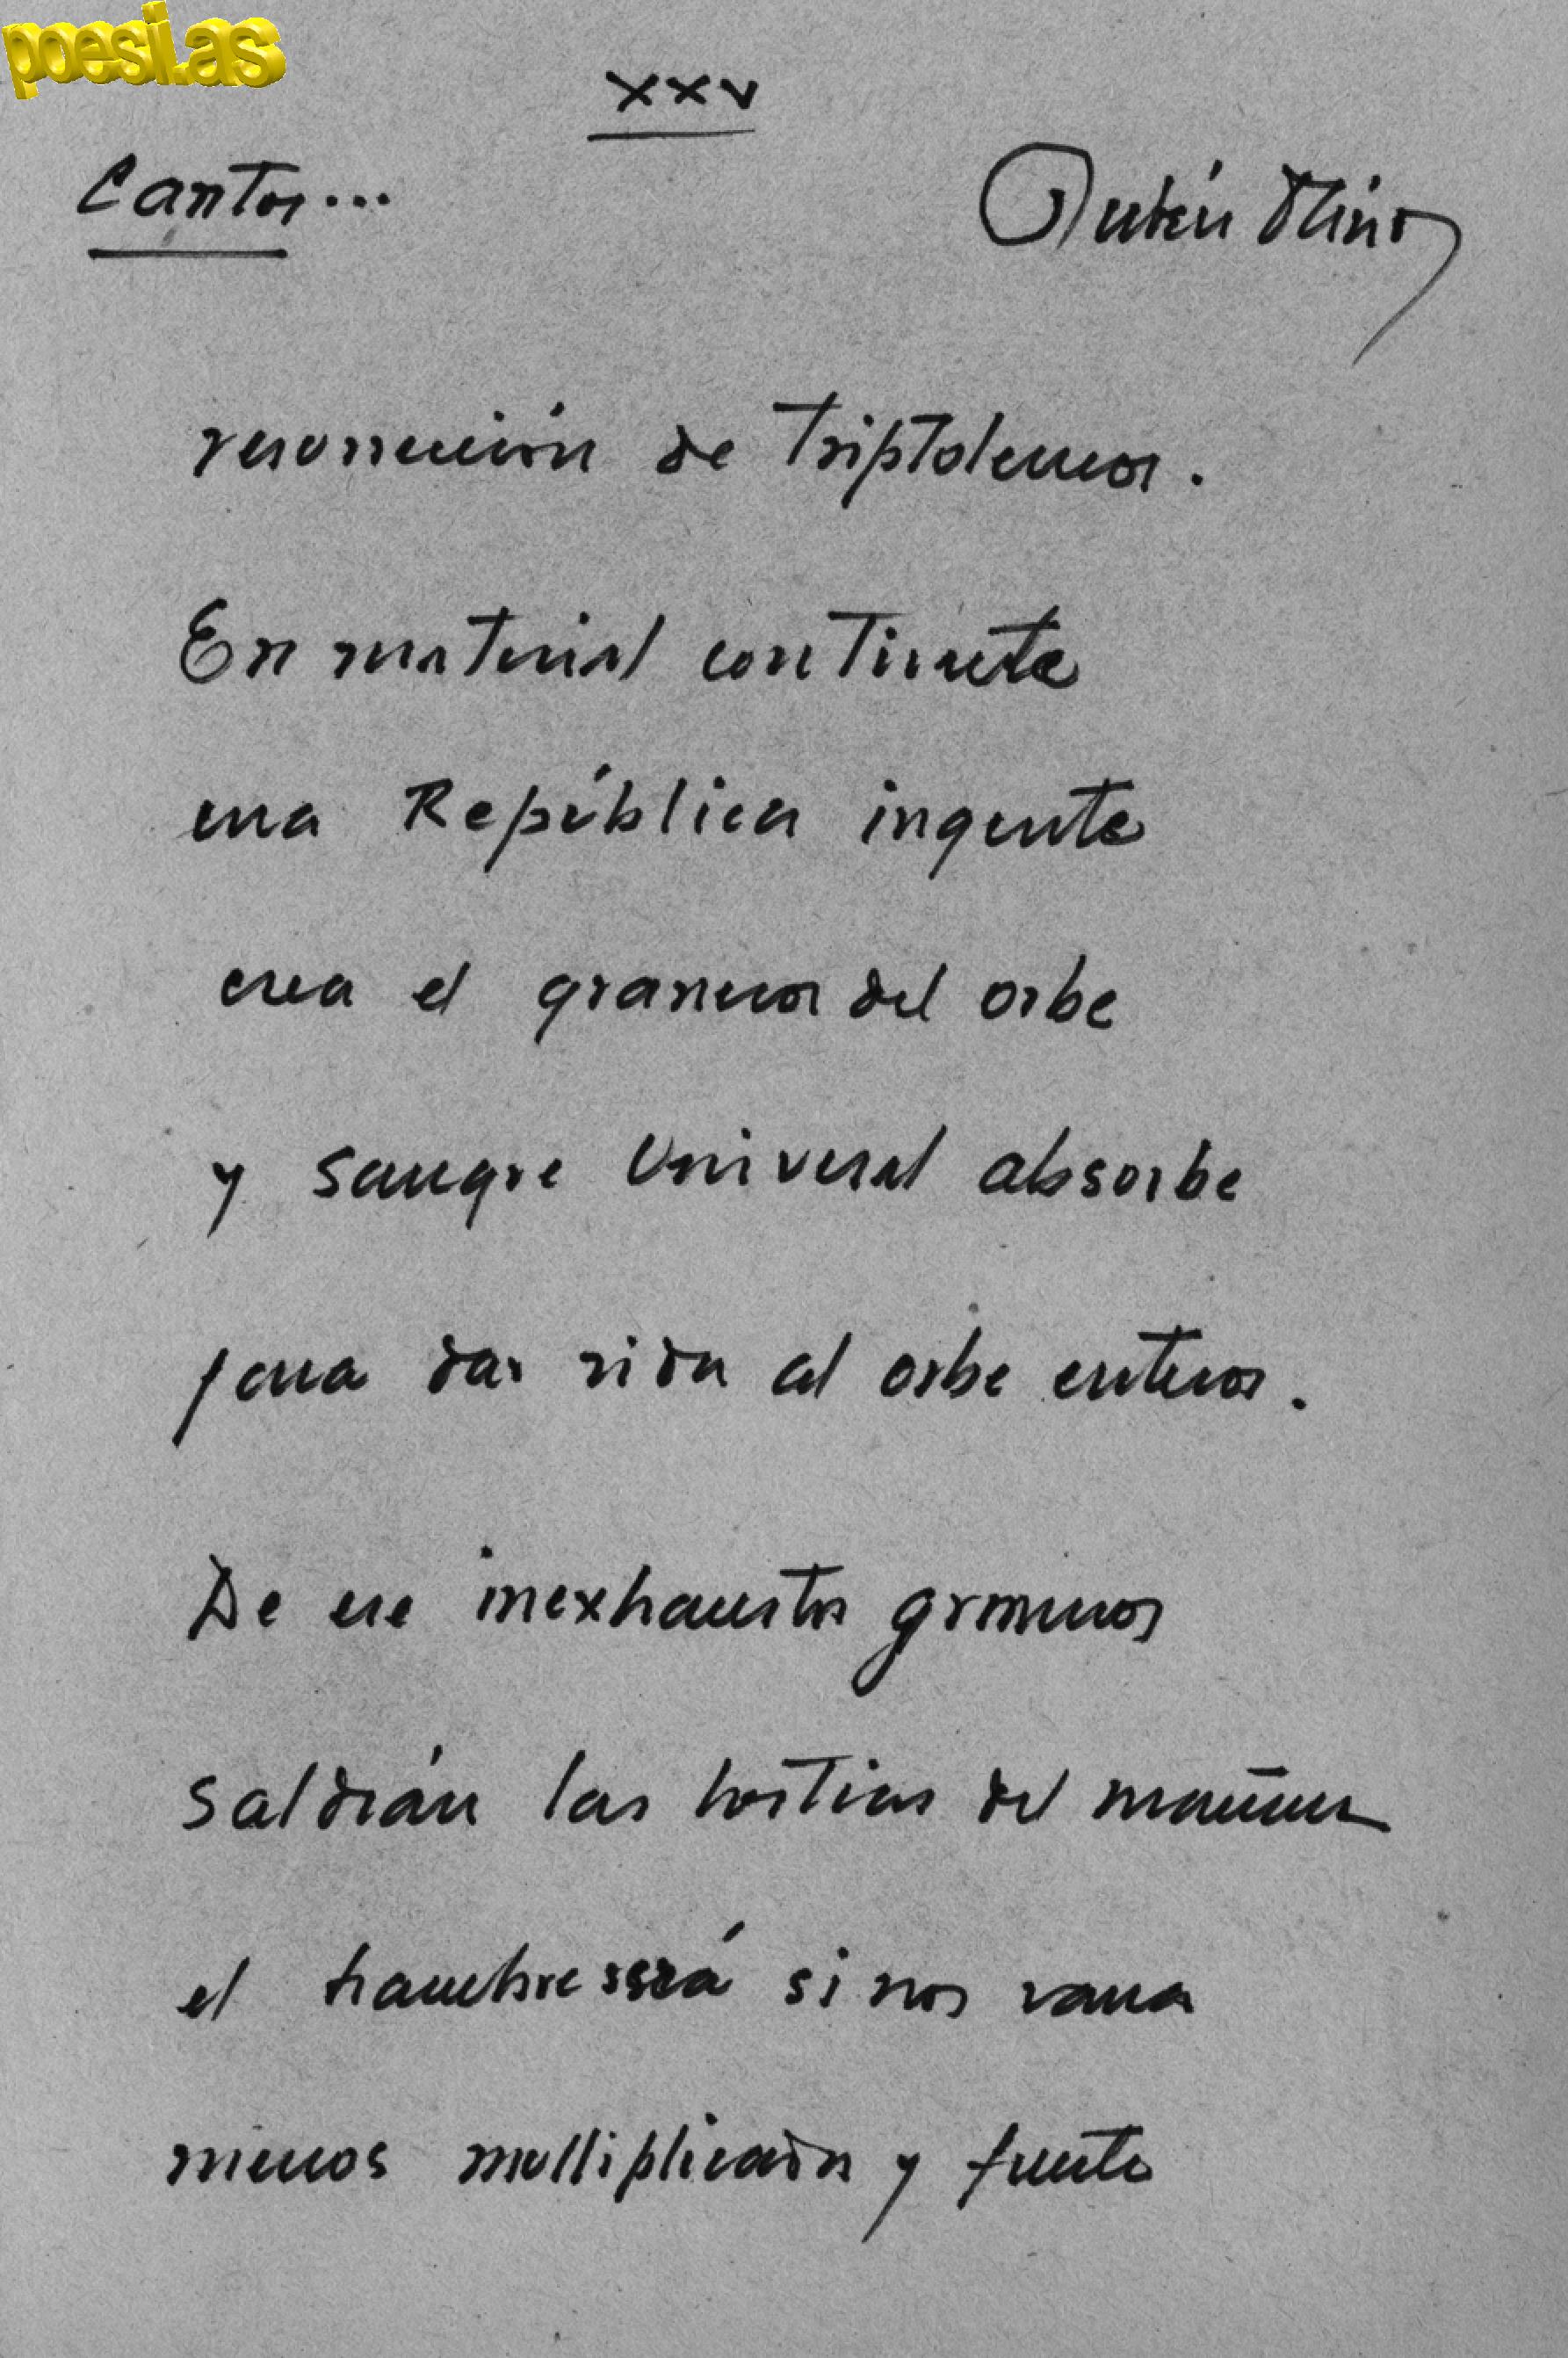 poesi.as
XXV
Canto...
Rubén Darío
resurrección de Triptolemo.
En maternal continente
una República ingente
crea el granero del orbe
y sangre Universal absorbe
para dar vida al orbe entero.
De ese inexhausto granero
saldrán las hostias del mañana
el hambre será si no vana
menos multiplicada y fuerte